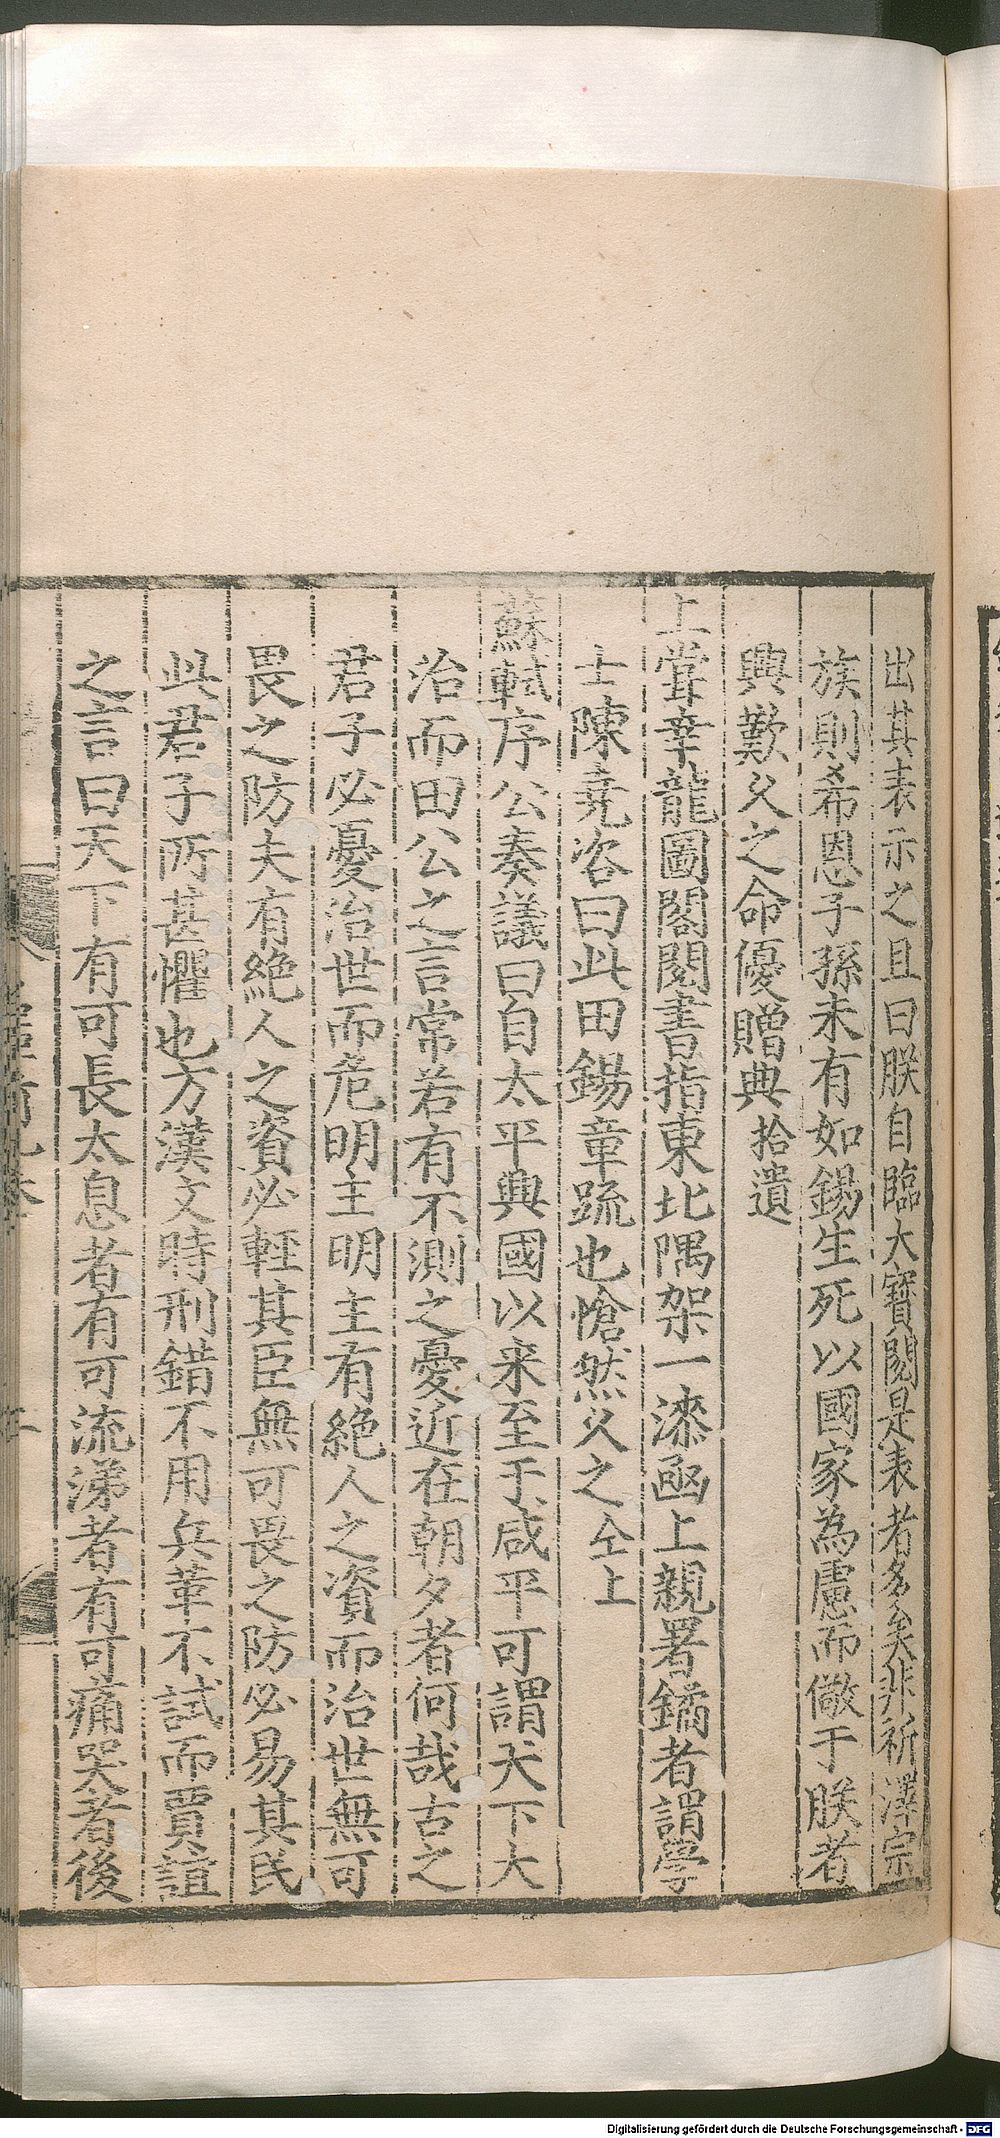 出其表示之且曰朕自臨大寶閱是表者多矣非祈澤宗
族則希恩子孫未有如錫生死以國家為慮而儆于朕者
興歎久之命優贈典拾遺
上甞幸龍圖閣閱書指東北隅架一漆凾上親署鐍者謂學
士陳堯咨曰此田錫章䟽也愴然久之仝上
蘇軾序公奏議曰自太平興國以来至于咸平可謂天下大
治而田公之言常若有不測之憂近在朝夕者何哉古之
君子必憂治世而危明主明主有絶人之資而治世無可
畏之防夫有絶人之資必輕其臣無可畏之防必易其民
此君子所甚懼也方漢文時刑錯不用兵革不試而賈誼
之言曰天下有可長太息者有可流涕者有可痛哭者後
Digitalisierung gefördert durch die Deutsche Forschungsgemeinschaft - DFG